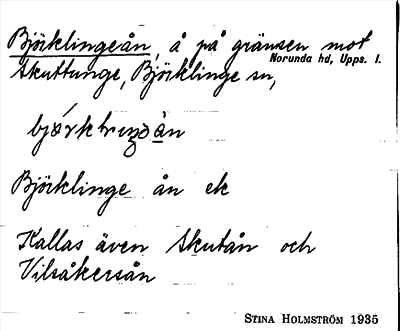 Björklingeån, å på gränsen mot
Norunda hd, Upps. l.
Skuttunge, Björklinge sn,
Björklinge ån ek
Kallas även Skutån och
Vilsåkersån
STINA HOLMSTRÖM 1935